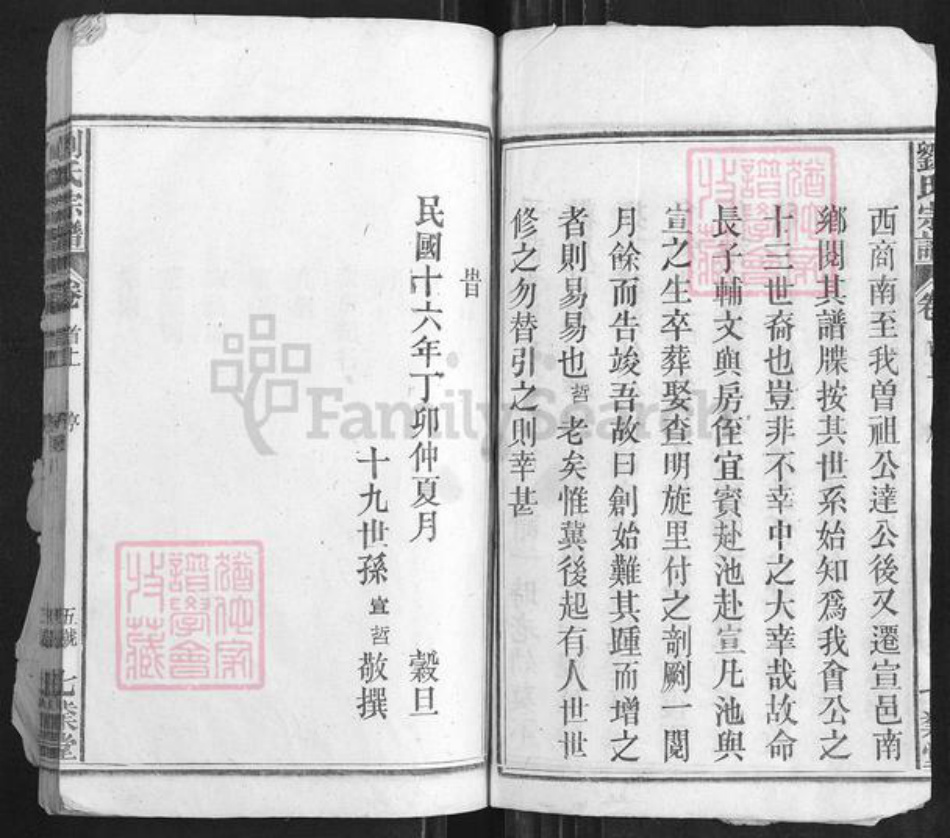 西商南至我曾祖公達公後又遷宣邑南
鄉閱其譜牒按其世系始知爲我會公之
十三世裔也豈非不幸中之大幸哉故命
長子輔文與房侄宜賓赴池赴宣凡池與
宣之生卒葬娶查明旋里付之剞劂一閱
月餘而告竣吾故曰創始難其踵而增之
者則易易也哲老矣惟冀後起有人世世
修之勿替引之則幸甚
劉氏宗譜
卷
旹
民國十六年丁卯仲夏月 穀旦
十九世孫宣哲敬撰
劉氏宗譜
卷
首上
序
五號
七業堂
猶他家譜學會收藏
猶他家譜學會收藏
FamilySearch